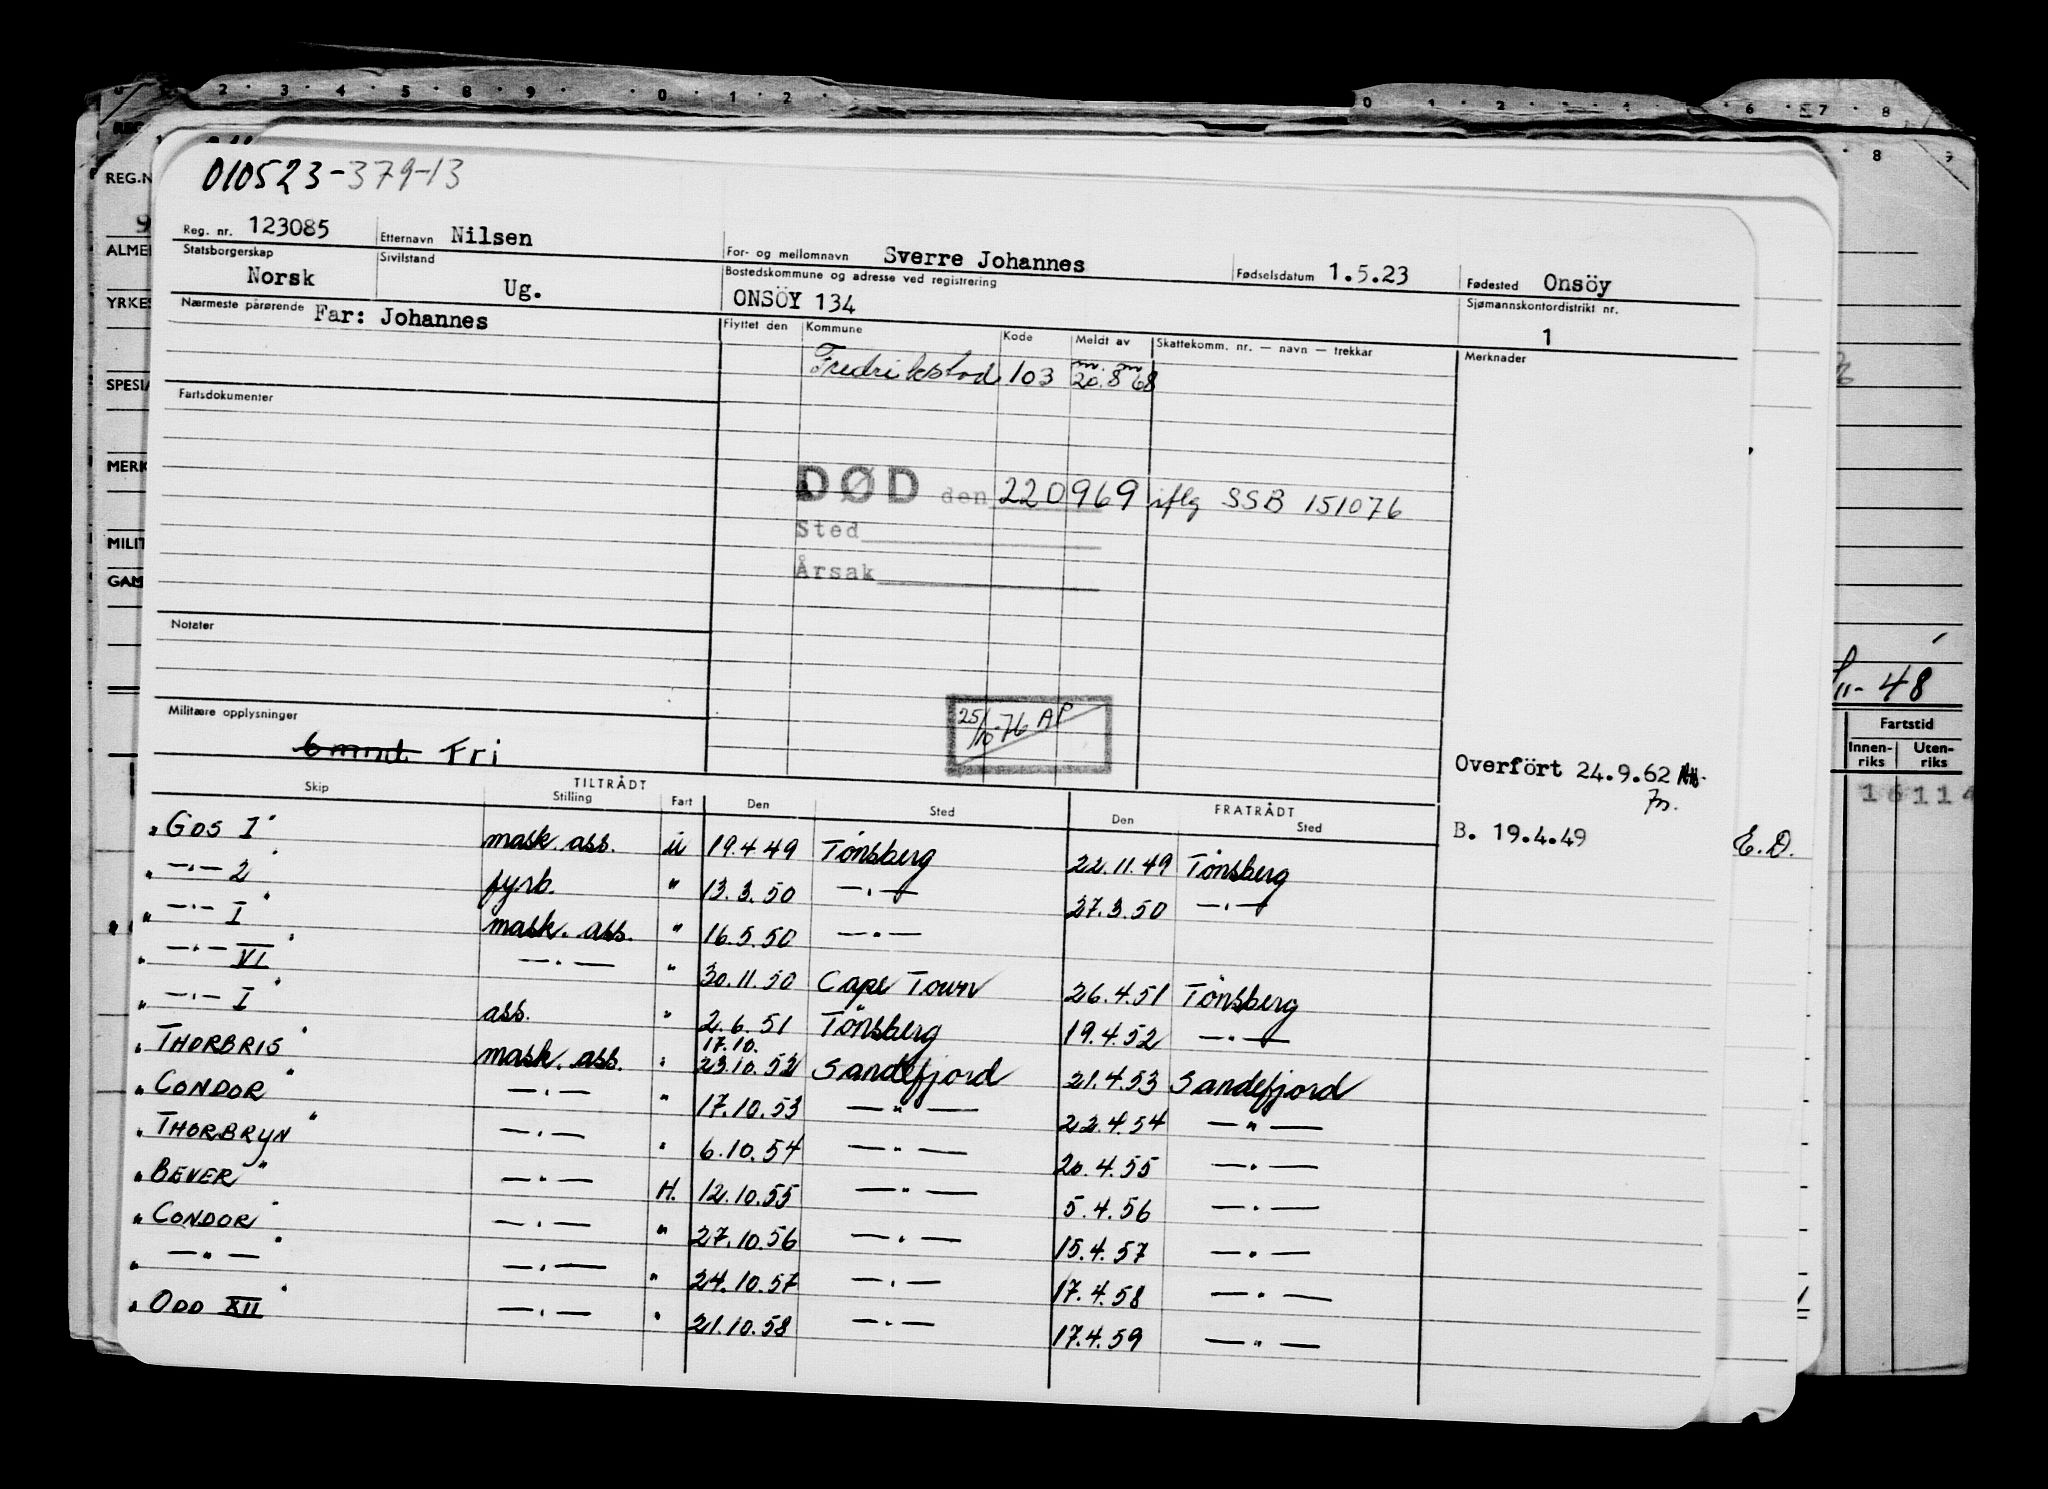 2 · 3 · 4 · 5 · 8 · 9 · 0 · 1 · 2 ·
0 · 1 · 2 · 6 · 7 · 8
8 9
010523-379-13
REG.N
Reg. nr. 123085 Etternavn Nilsen For- og mellomnavn Sverre Johannes Fødselsdatum 1.5.23 Fødested Onsöy
ALME
Statsborgerskap Norsk Sivilstand Ug. Bostedskommune og adresse ved registrering ONSÖY 134 Sjømannskontordistrikt nr. 1
YRKES
Nærmeste pårørende Far: Johannes Flyttet den Kommune Kode Meldt av Skattekomm. nr. — navn — trekkar Merknader
Fredrikstad 103 20.8 68
SPESIA
Fartsdokumenter
MERK
DØD den 220969 iflg SSB 151076
Sted
MILIT
Årsak
GAM
Notater
Militære opplysninger
6 mnd. Fri
25/10-76 AP
11- 48
Fartstid
Innen-riks Uten-riks
16114
Overfört 24.9.62
B. 19.4.49
E.D.
TILTRÅDT FRATRÅDT
Skip Stilling Fart Den Sted Den Sted
"Gos I" mask. ass. u 19.4 49 Tönsberg 22.11.49 Tönsberg
" —·— 2" fyrb. " 13.3.50 —·— 27.3.50 —·—
" —·— I" mask. ass. " 16.5.50 —·—
" —·— VI" —·— " 30.11.50 Cape Town 26.4.51 Tönsberg
" —·— I" ass. " 2.6.51 Tönsberg 19.4.52 —·—
17.10.
"THORBRIS" mask. ass. " 23.10.52 Sandefjord 21.4.53 Sandefjord
"CONDOR" —·— " 17.10.53 —"— 22.4.54 —"—
"THORBRYN" —·— " 6.10.54 —"— 20.4.55 —·—
"BEVER" —·— H. 12.10.55 —"— 5.4.56 —·—
"CONDOR" —·— " 27.10.56 —·— 15.4.57 —·—
" —"— " —·— " 24.10.57 —·— 17.4.58 —·—
"ODD XII" —·— " 21.10.58 —·— 17.4.59 —"—